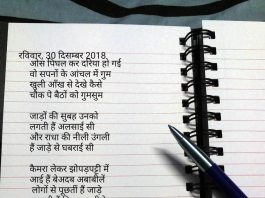 रविवार, 30 दिसम्बर 2018
ओस पिघल कर दरिया हो गई
वो सपनों के आंचल में गुम
खुली आँख से देखे कैसे
चौंक पे बैठों को गुमसुम
जाड़ों की सुबह उनको
लगती हैं अलसाई सी
और राधा की नीली उंगली
हैं जाड़े से घबराई सी
कैमरा लेकर झोपड़पट्टी में
आई हैं बेअदब अबाबीलें
लोगों से पूछतीं हैं जाड़े